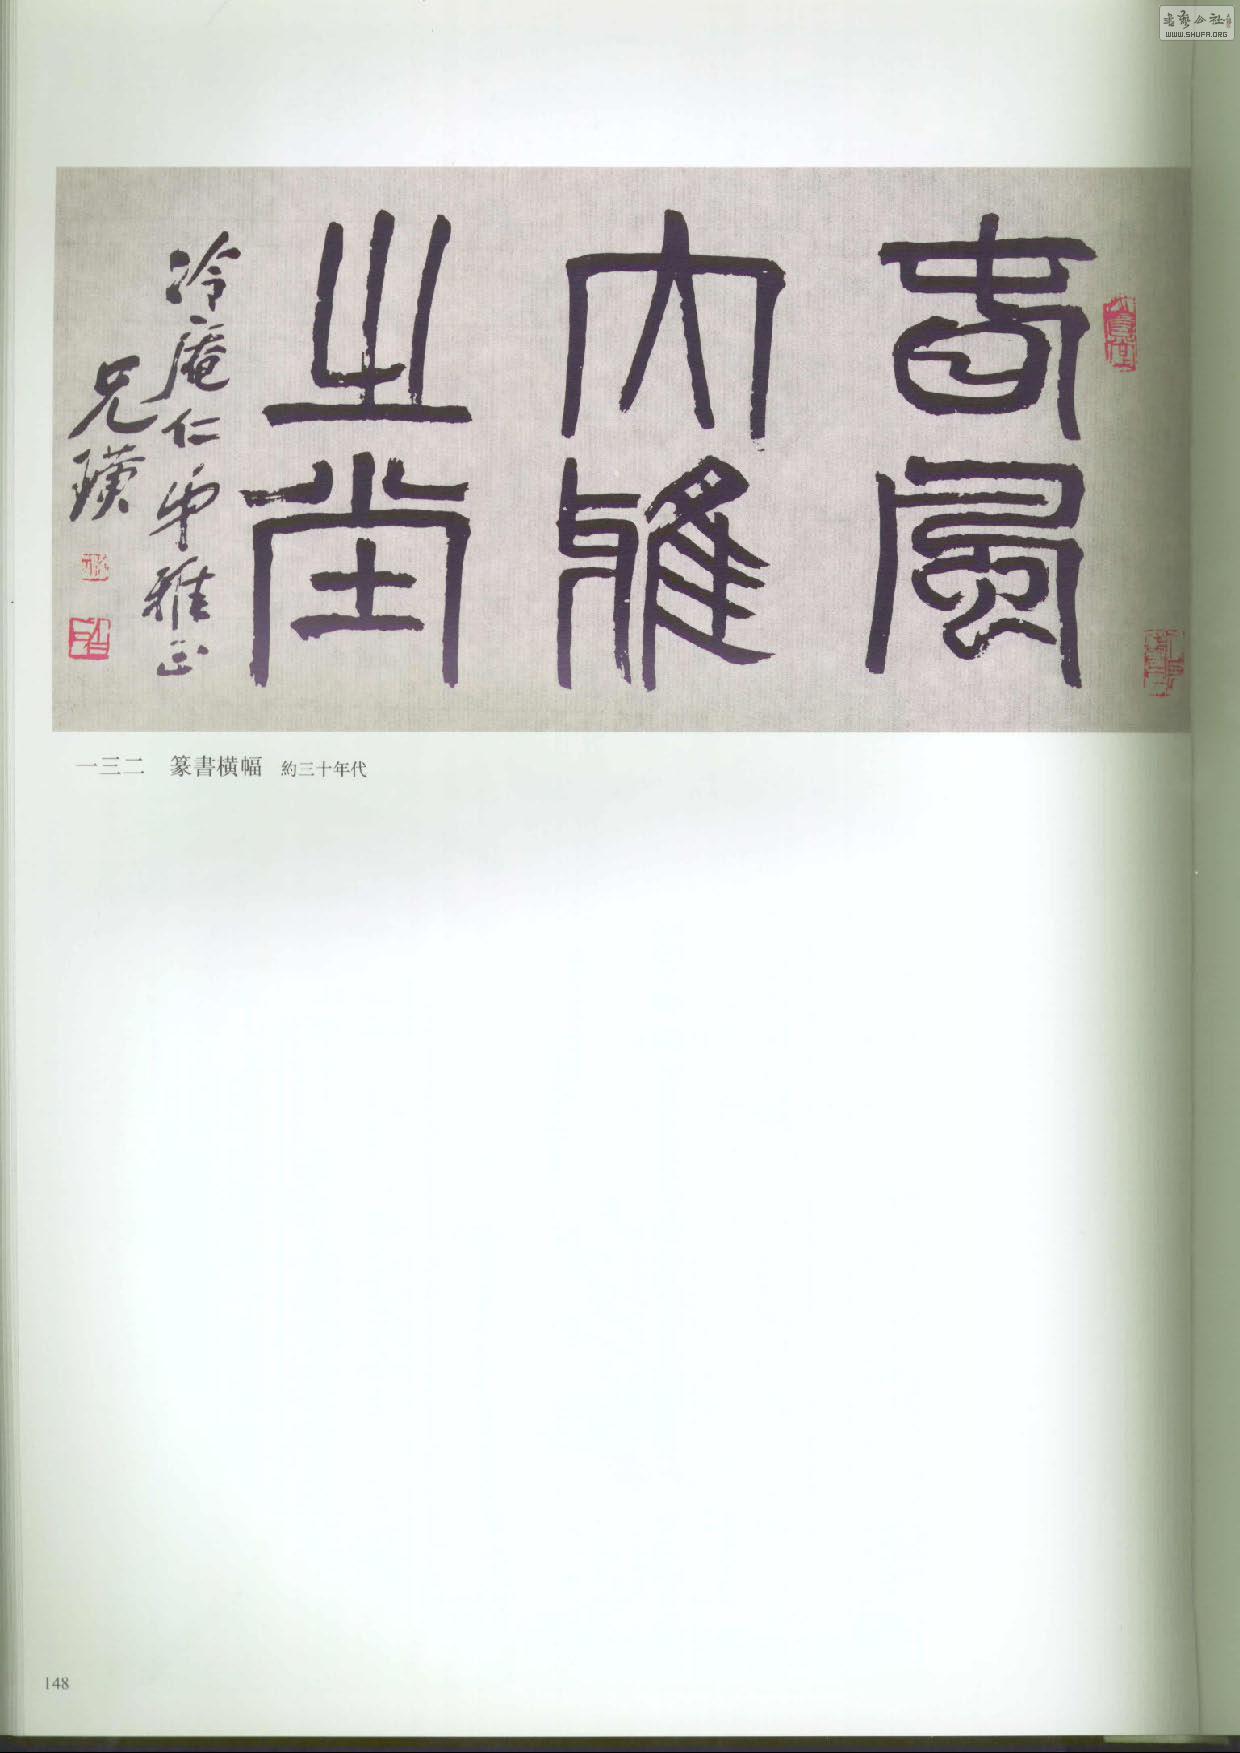 春風
大雅
之堂
冷庵仁弟雅正
兄璜
一三二 篆書橫幅 約三十年代
148
書藝公社
WWW.SHUFA.ORG